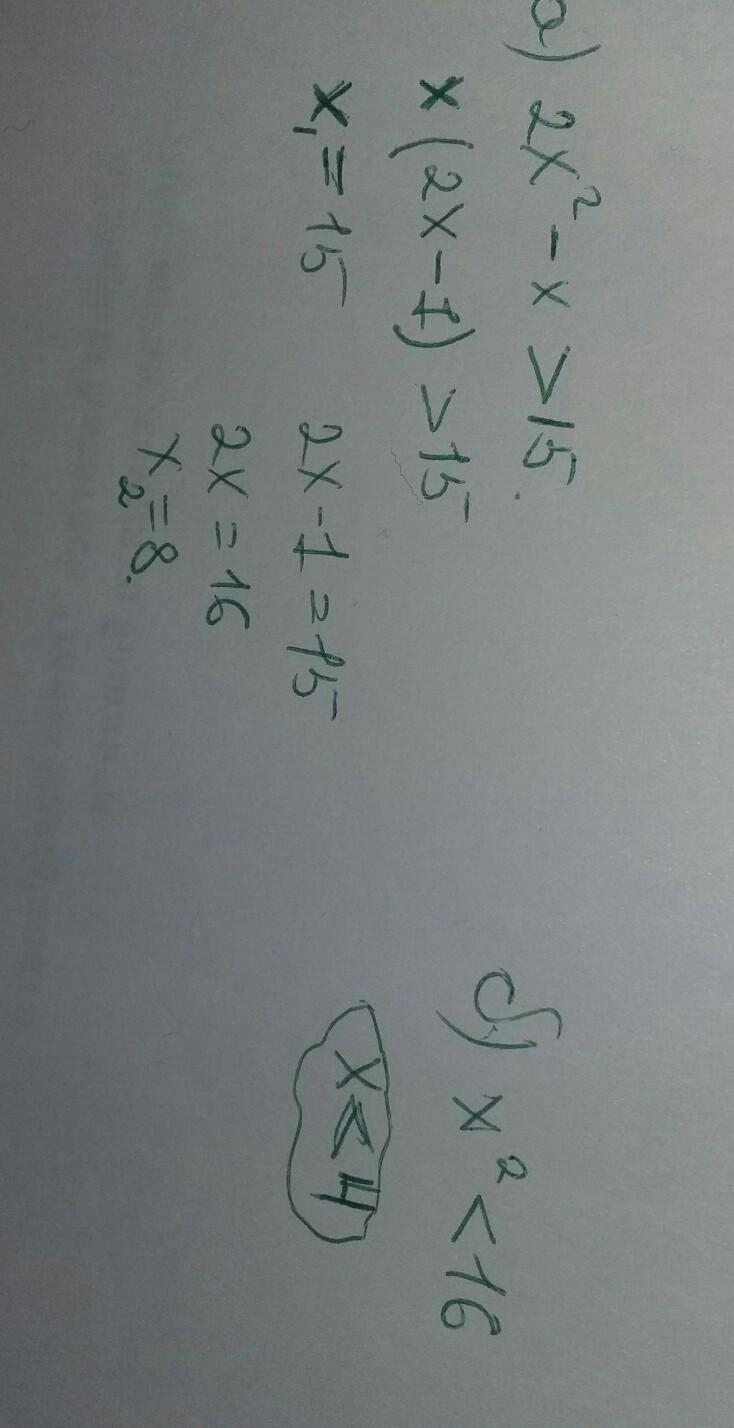 а) 2x² - x > 15.
x (2x - 1) > 15
x₁ = 15
2x - 1 = 15
2x = 16
x₂ = 8.
б) x² < 16
x < 4